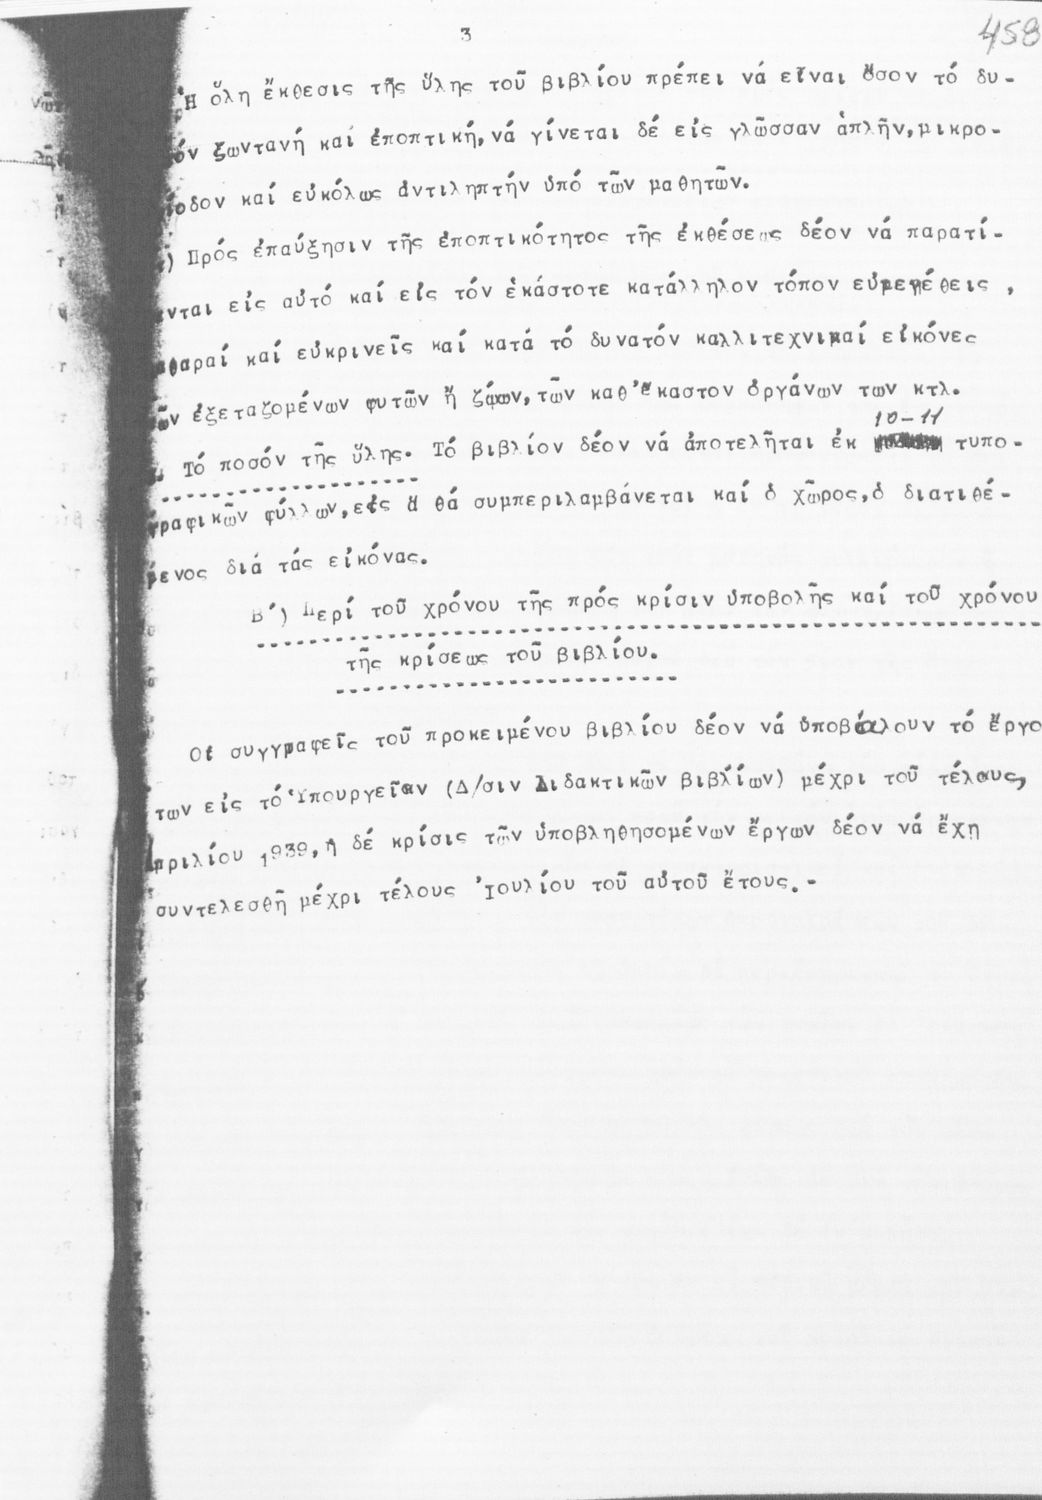 3
458
Ἡ ὅλη ἔκθεσις τῆς ὕλης τοῦ βιβλίου πρέπει νά εἶναι ὅσον τό δυ-
όν ζωντανή καί ἐποπτική, νά γίνεται δέ εἰς γλῶσσαν ἁπλῆν, μικρο-
οδον καί εὐκόλως ἀντιληπτήν ὑπό τῶν μαθητῶν.
) Πρός ἐπαύξησιν τῆς ἐποπτικότητος τῆς ἐκθέσεως δέον νά παρατί-
νται εἰς αὐτό καί εἰς τόν ἑκάστοτε κατάλληλον τόπον εὐμεγέθεις ,
θαραί καί εὐκρινεῖς καί κατά τό δυνατόν καλλιτεχνικαί εἰκόνες
ῶν ἐξεταζομένων φυτῶν ἤ ζώων, τῶν καθ'ἕκαστον ὀργάνων των κτλ.
10-11
. Τό ποσόν τῆς ὕλης. Τό βιβλίον δέον νά ἀποτελῆται ἐκ τυπο-
γραφικῶν φύλλων, εἰς ἅ θά συμπεριλαμβάνεται καί ὁ χῶρος, ὁ διατιθέ-
μενος διά τάς εἰκόνας.
Β΄) Περί τοῦ χρόνου τῆς πρός κρίσιν ὑποβολῆς καί τοῦ χρόνου
τῆς κρίσεως τοῦ βιβλίου.
Οἱ συγγραφεῖς τοῦ προκειμένου βιβλίου δέον νά ὑποβάλουν τό ἔργο
των εἰς τό Ὑπουργεῖον (Δ/σιν Διδακτικῶν βιβλίων) μέχρι τοῦ τέλους,
πριλίου 1939, ἡ δέ κρίσις τῶν ὑποβληθησομένων ἔργων δέον νά ἔχῃ
συντελεσθῆ μέχρι τέλους Ἰουλίου τοῦ αὐτοῦ ἔτους.-